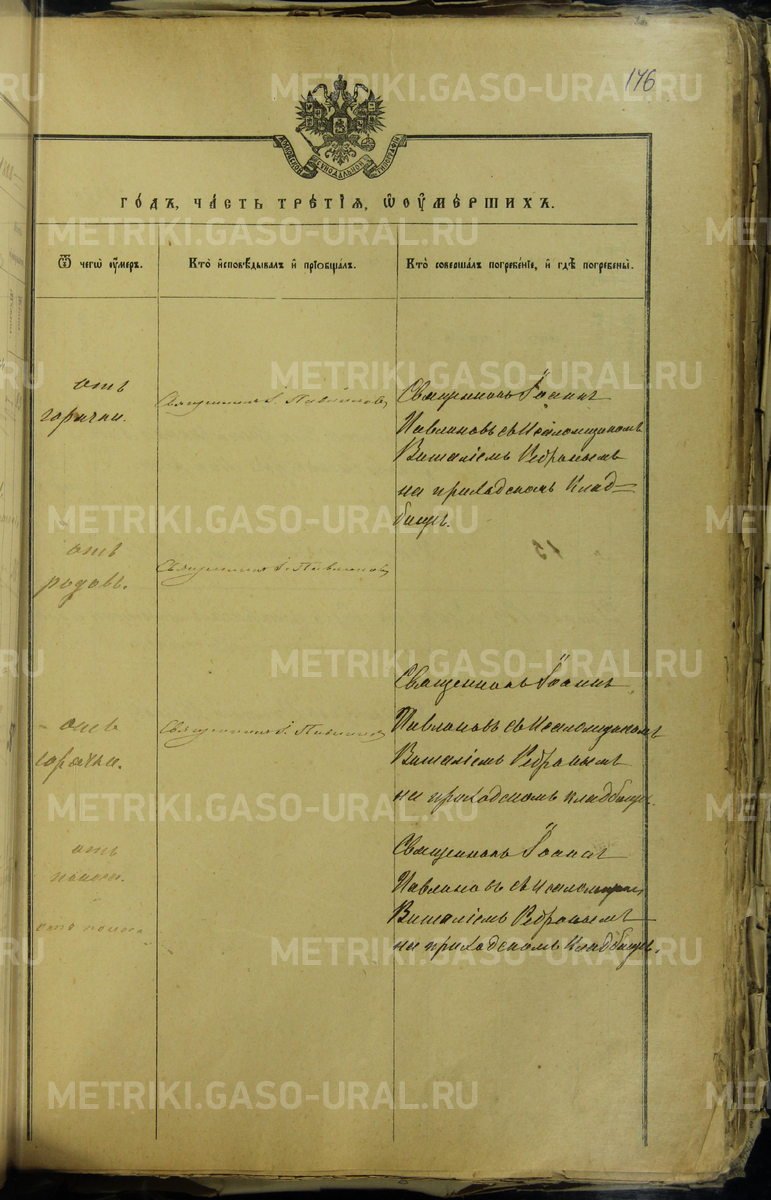 146
МОСКОВСКОЙ СѴНОДАЛЬНОЙ ТИПОГРАФІИ
METRIKI.GASO-URAL.RU
ГО́ДЪ, ЧА́СТЬ ТРЕ́ТІѦ, Ѡ ОУ҆МЕ́РШИХЪ.
Ѿ чегѡ̀ оу҆́меръ.
Кто̀ и҆сповѣ́дывалъ и҆ прїѡбща́лъ.
Кто̀ соверша́лъ погребе́нїе, и҆ гдѣ̀ погребены̀.
отъ
горячки.
Священникъ І. Павлиновъ
Священникъ Іоаннъ
Павлиновъ съ Псаломщикомъ
Виталіемъ Ребринымъ
на приходскомъ клад=
бищѣ.
отъ
родовъ.
Священникъ І. Павлиновъ
отъ
горячки.
Священникъ І. Павлиновъ
Священникъ Іоаннъ
Павлиновъ съ Псаломщикомъ
Виталіемъ Ребринымъ
на приходскомъ кладбищѣ.
отъ
поноса.
отъ поноса
Священникъ Іоаннъ
Павлиновъ съ Псаломщикомъ
Виталіемъ Ребринымъ
на приходскомъ кладбищѣ.